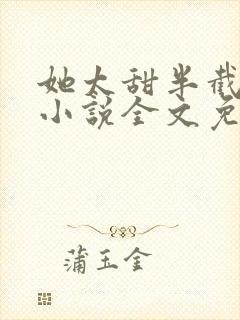 她太甜半截
小说全文免
蒲玉金